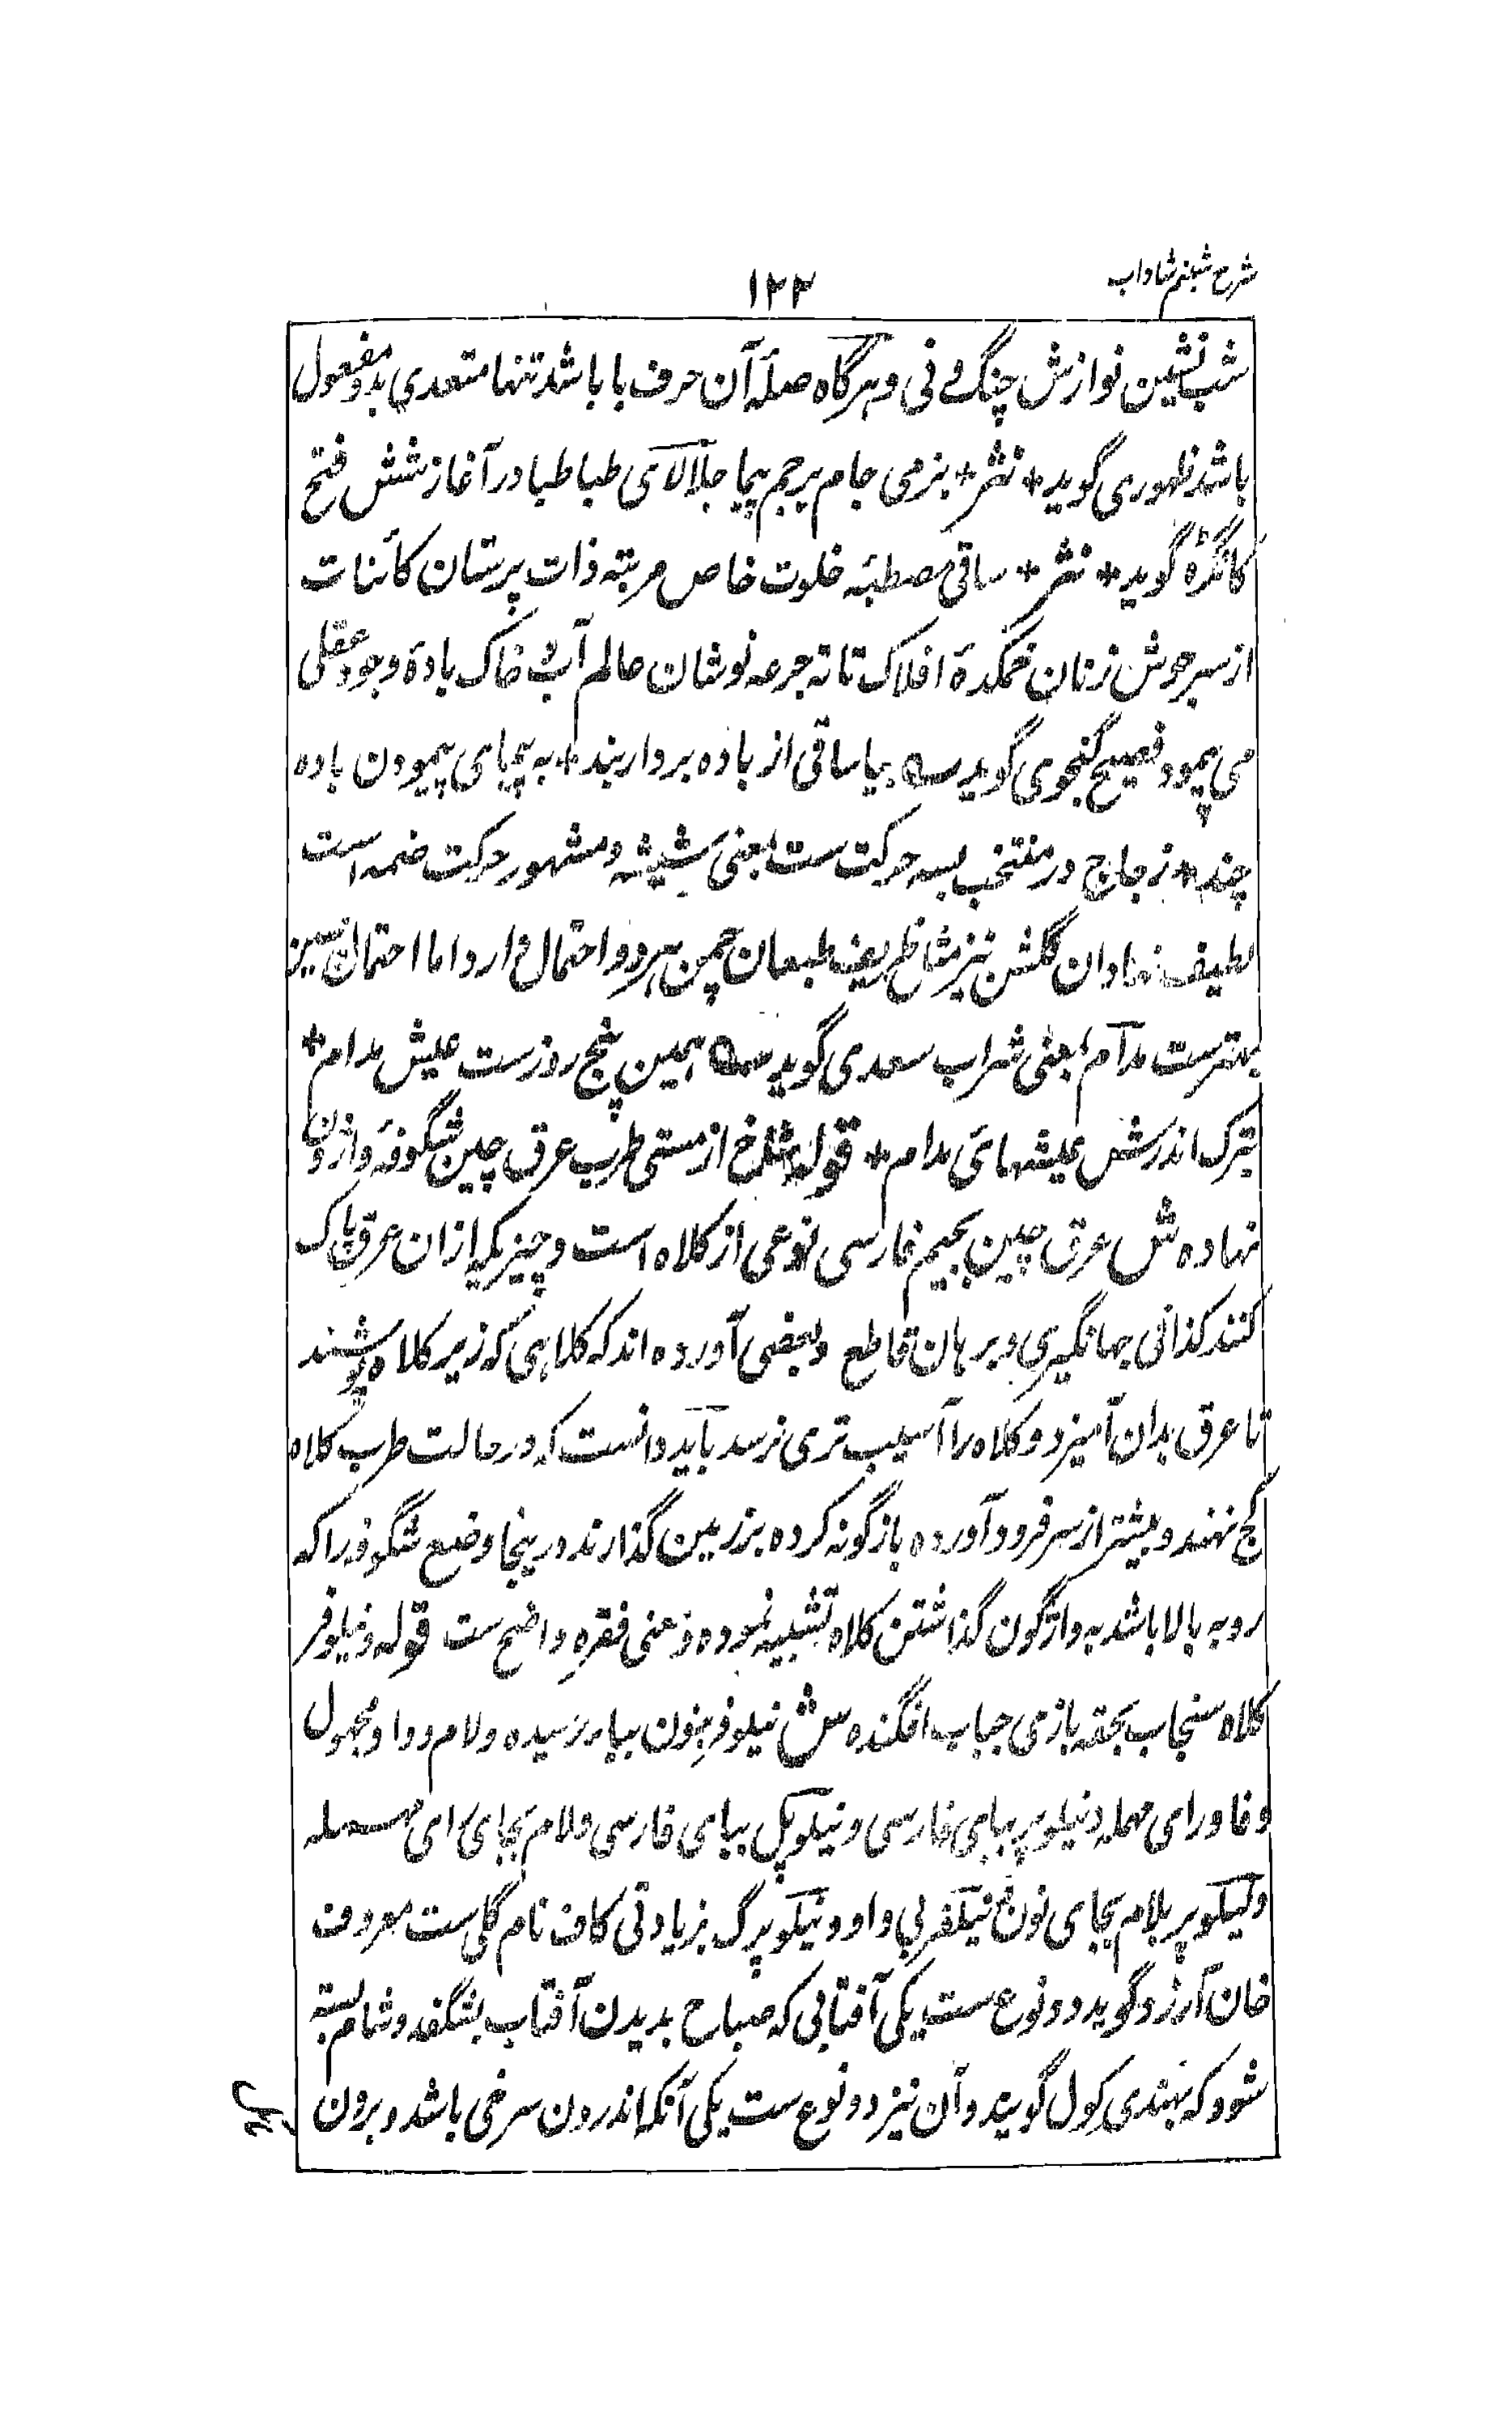 شرح شبنم شاداب
۱۲۲
شب نشین نوازش چنگ و نی و هرگاه صلهٔ آن حرف با باشد تنها متعدی بدو مفعول
باشد ظهوری گوید * نثر * بزمی جام بر جم پیما جلالای طباطبا در آغاز شش فتح
کانگڑه گوید * نثر * ساقی مصطبهٔ خلوت خاص مرتبه ذات پرستان کائنات
از سرجوش زنان خمکدهٔ افلاک تا ته جرعه نوشان عالم آب و خاک بادهٔ وجود عقلی
می پیمود فصیح گنجوی گوید بیا ساقی از باده بردار بند * به پیمای پیمودن باده
چند * زجاج در منتخب بسه حرکت ست بمعنی شیشه و مشهور حرکت ضمه است
لطیف نهادان گلشن نیز مثل ظریف طبعان چمن هر دو احتمال دارد اما احتمال
بهترست مدام بمعنی شراب سعدی گوید همین پنج روزست عیش مدام *
بترک اندرش عیشهای مدام * قوله شاخ از مستی طرب عرق چین شگوفه واژون
نهاده ش عرق چین بجیم فارسی نوعی از کلاه است و چیزیکه ازان عرق پاک
کنند کذا فی جهانگیری و برهان قاطع و بعضی آورده اند که کلاهی که زیر کلاه پوشند
تا عرق بدان آمیزد و کلاه را آسیب تری نرسد باید دانست که در حالت طرب کلاه
کج نهند و بیشتر از سر فرود آورده بازگونه کرده بر زمین گذارند درینجا وضع شگوفه را که
رو به بالا باشد به واژگون گذاشتن کلاه تشبیه نموده و معنی فقره واضح ست قوله و نیلوفر
کلاه سنجاب بحقه بازی حباب افگنده ش نیلوفر بنون بیا رسیده و لام و واو مجهول
و فا و رای مهمله و نیلوپر ببای فارسی و نیلوپل ببای فارسی و لام بجای رای مهمله
و لیلوپر بلام بجای نون و نیلفر بی واو و نیلوپرگ بزیادتی کاف نام گلی ست معروف
خان آرزو گوید دو نوع ست یکی آفتابی که صباح بدیدن آفتاب بشگفد و شام بسته
شود که بهندی کول گویند و آن نیز دو نوع ست یکی آنکه اندرون سرخی باشد و برون